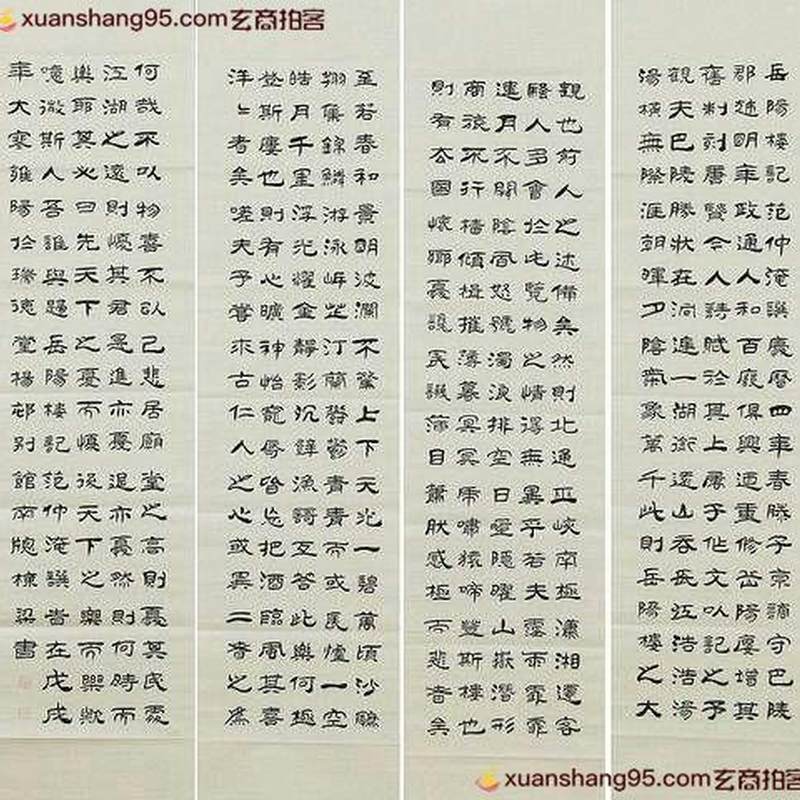 xuanshang95.com玄商拍客
岳陽樓記范仲淹譔慶曆四年春滕子京謫守巴陵
郡越明年政通人和百廢俱興迺重修岳陽廔增其
舊制刻唐賢今人詩賦於其上屬予作文以記之予
觀夫巴陵勝狀在洞庭一湖銜遠山吞長江浩浩湯
湯橫無際涯朝暉夕陰氣象萬千此則岳陽樓之大
觀也前人之述備矣然則北通巫峽南極瀟湘遷客
騷人多會於此覽物之情得無異乎若夫霪雨霏霏
連月不開陰風怒號濁浪排空日星隱曜山嶽潛形
商旅不行檣傾楫摧薄暮冥冥虎嘯猿啼登斯樓也
則有去國懷鄉憂讒畏譏滿目蕭然感極而悲者矣
至若春和景明波瀾不驚上下天光一碧萬頃沙鷗
翔集錦鱗游泳岸芷汀蘭鬱鬱青青而或長煙一空
皓月千里浮光耀金靜影沉璧漁歌互答此樂何極
登斯廔也則有心曠神怡寵辱皆忘把酒臨風其喜
洋洋者矣嗟夫予嘗求古仁人之心或異二者之為
何哉不以物喜不以己悲居廟堂之高則憂其民處
江湖之遠則憂其君是進亦憂退亦憂然則何時而
樂耶其必曰先天下之憂而憂後天下之樂而樂歟
噫微斯人吾誰與歸岳陽樓記范仲淹譔旹在戊戌
年大寒雒陽於德堂楊邨別館南牕棟梁書
xuanshang95.com玄商拍客